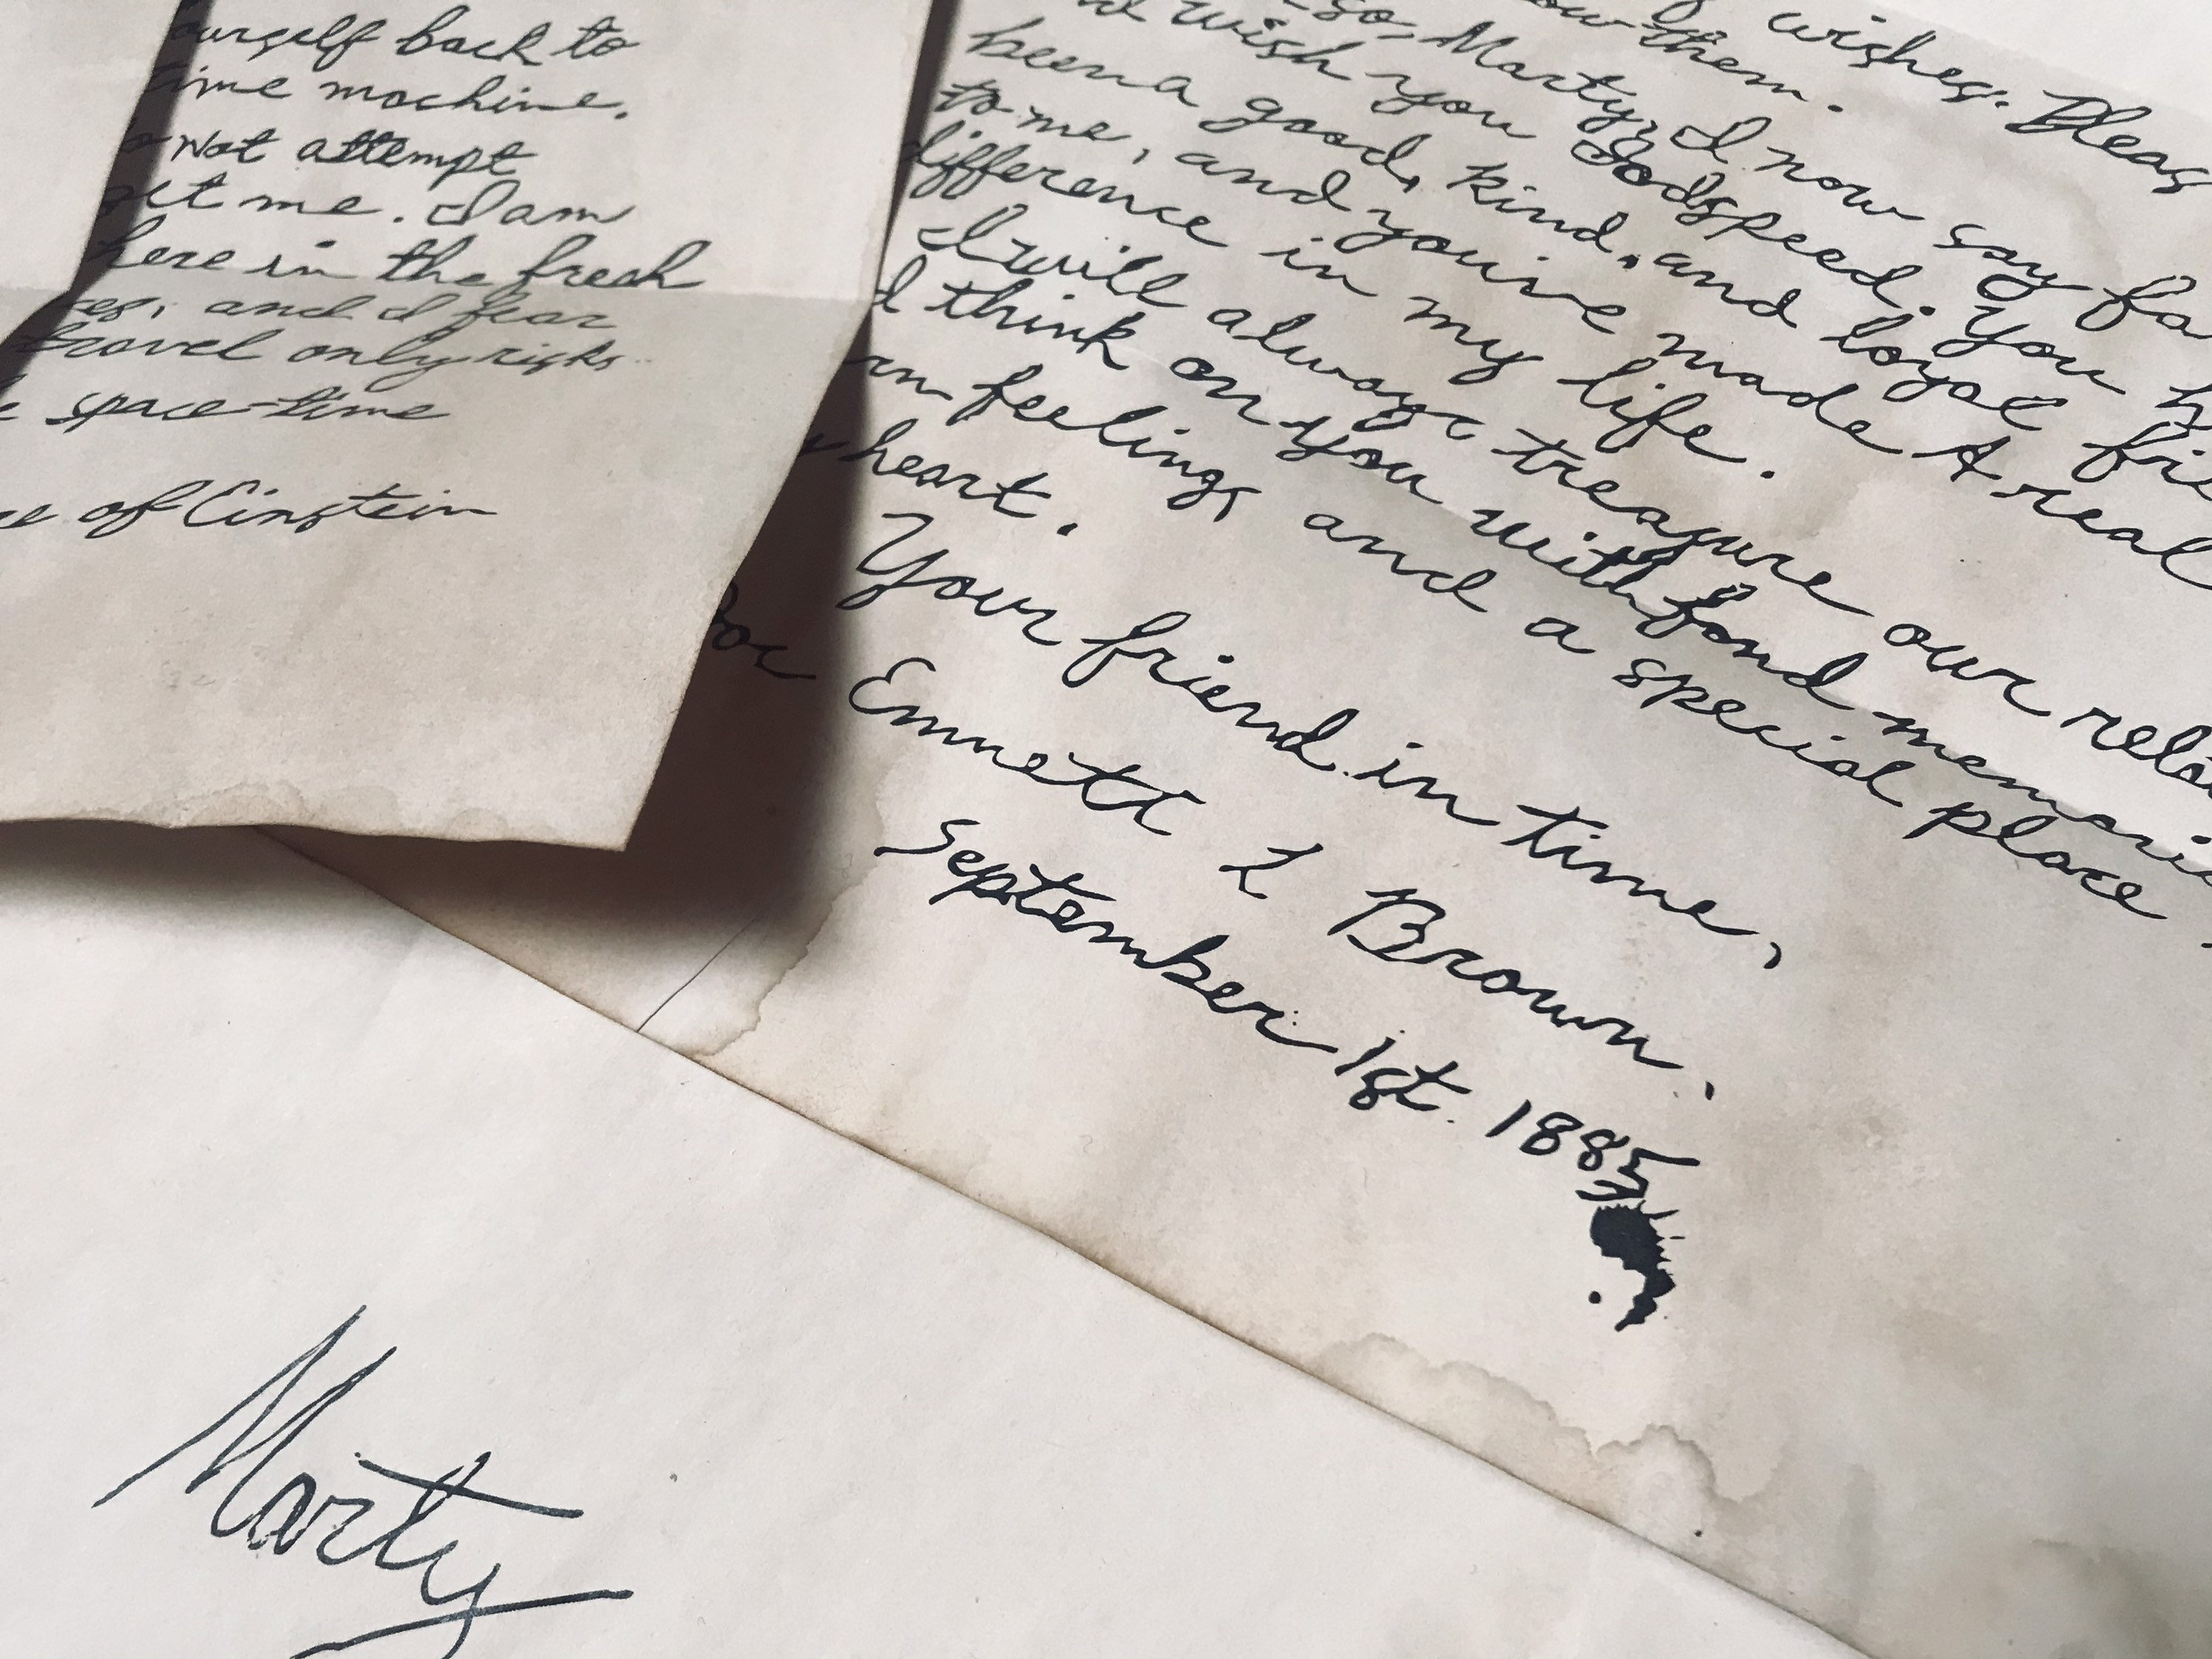 ourself back to
ime machine.
o Not attempt
get me. I am
here in the fresh
es, and I fear
travel only risks
e space-time
re of Einstein
wishes. Pleas
ow them.
so, Marty, I now say fa
wish you Godspeed. You h
been a good, kind, and loyal frie
to me, and you've made A real
difference in my life.
I will always treasure our rela
d think on you with fond memorie
rm feelings and a special place
y heart.
Your friend in time,
Doc Emmett L Brown.
September 1st. 1885
Marty